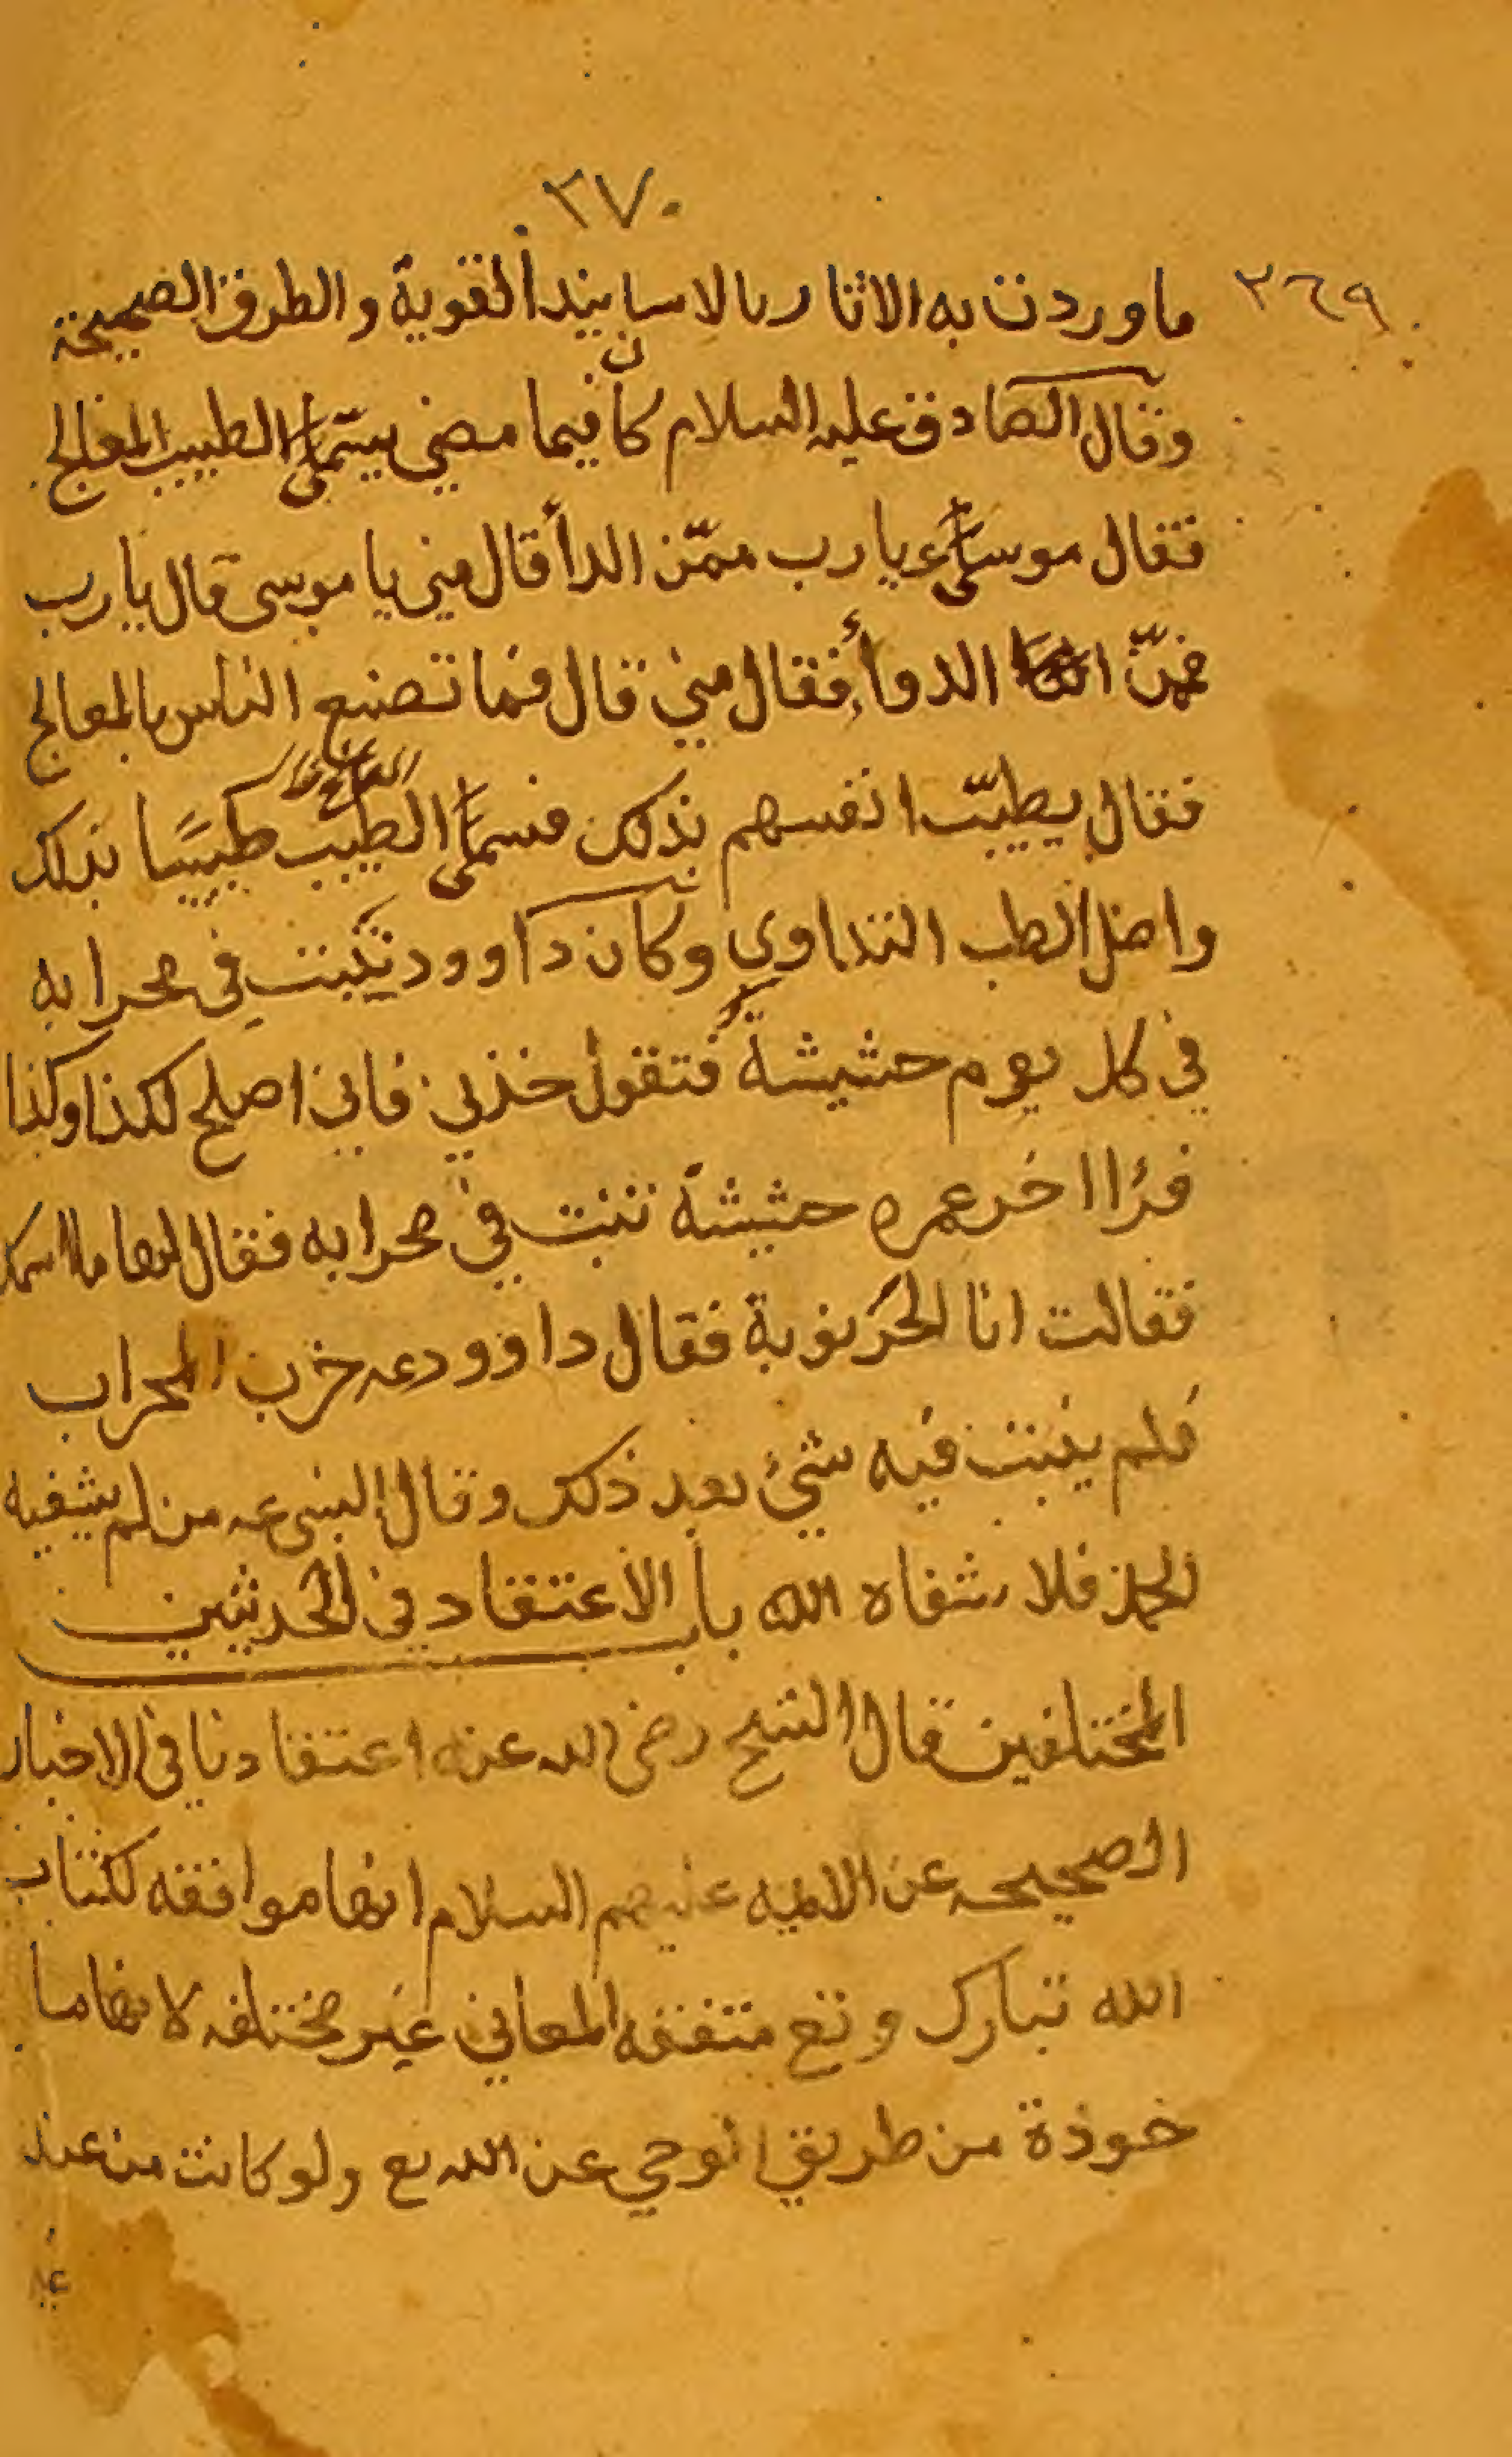 ٣٧٠
٣٦٩
ما وردت به الاثار بالاسانيد القوية والطرق الصحيحة
وقال الصادق عليه السلام كان فيما مضى يسمى الطبيب المعالج
فقال موسى ع يا رب ممّن الدأ قال مني يا موسى قال يا رب
فممّن الدوأ فقال مني قال فما تصنع الناس بالمعالج
فقال يطيّب انفسهم بذلك فسمى الطبيب طبيبًا بذلك
المعالج
واصل الطب التداوي وكان داوود تنبت في محرابه
في كل يوم حشيشة فتقول خذني فاني اصلح لكذا وكذا
فرأا اخر عمره حشيشة تنبت في محرابه فقال لها ما اسمك
فقالت انا الخرنوبة فقال داوود عه خرب المحراب
فلم ينبت فيه شيء بعد ذلك وقال النبي عه من لم يشفيه
الحمد فلا شفاه الله باب الاعتقاد في الحديثين
المختلفين قال الشيخ رضي الله عنه اعتقادنا في الاخبار
الصحيحه عن الائمه عليهم السلام انها موافقه لكتاب
الله تبارك وتع متفقه المعاني غير مختلفه لانها ما
خوذة من طريق الوحي عن الله تع ولو كانت من عند